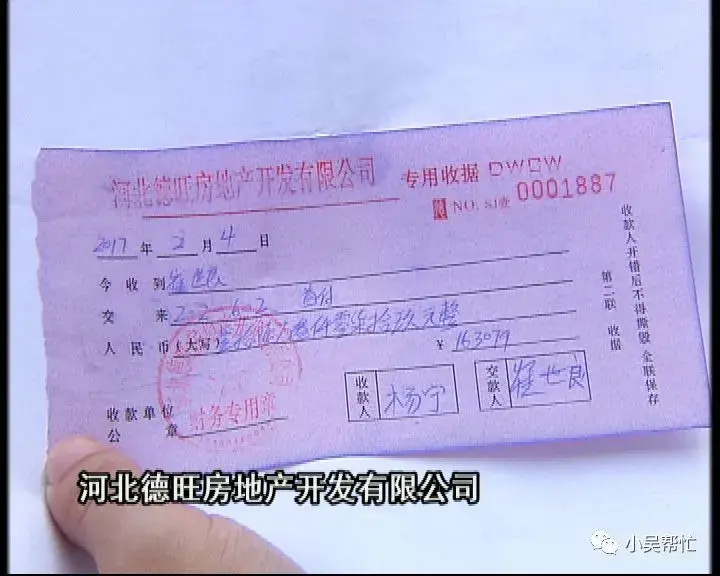 河北德旺房地产开发有限公司 专用收据 DWCW
NO. SJ壹 0001887
2017 年 2 月 4 日
今收到 崔世良
交来 2-2-602 首付
人民币(大写) 壹拾陆万叁仟零柒拾玖元整 ¥ 163079
收款单位
公章
财务专用章
收款人 杨宁
交款人 崔世良
第二联 收据
收款人开错后不得撕毁 全联保存
河北德旺房地产开发有限公司
小吴帮忙